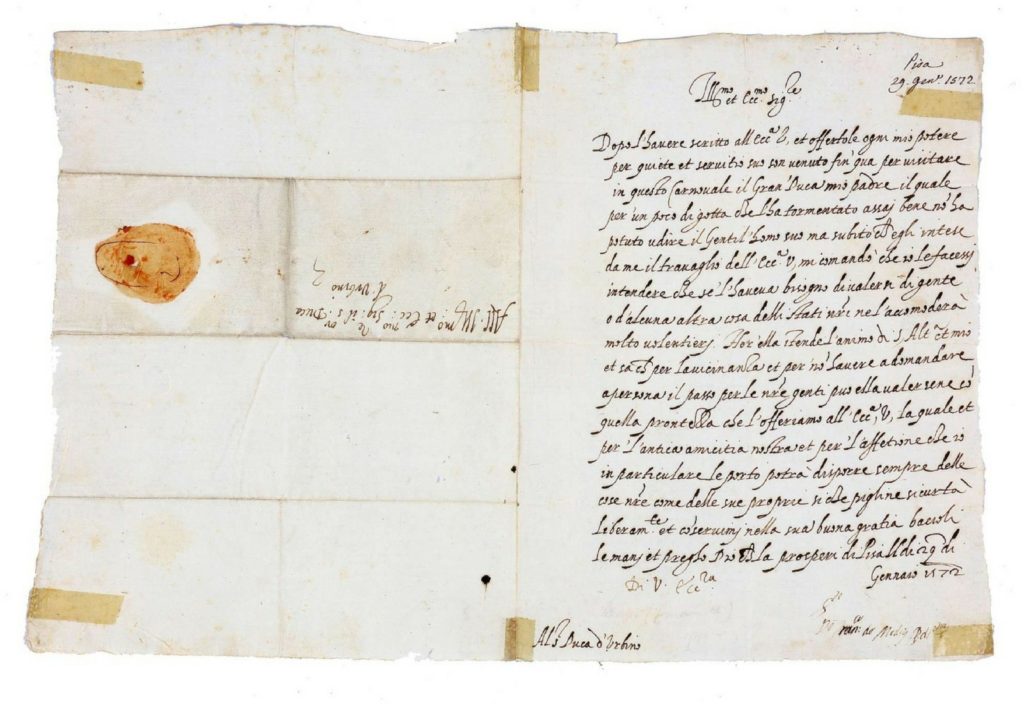 Pisa
29. Gen.º 1572
Ill.mo et Ecc.mo Sig.re
Dopo l'havere scritto all'Ecc.a V, et offertole ogni mio potere
per quiete et servitio suo son venuto fin qua per visitare
in questo Carnovale il Gran' Duca mio padre il quale
per un poco di gotta che l'ha tormentato assai bene nõ ha
potuto udire il Gentil'homo suo ma subito ch' egli intese
da me il travaglio dell'Ecc.a V, mi comandò che io le facessi
intendere che se l'haveva bisogno di valersi di gente
o d'alcuna altra cosa delli Stati nri ne l'accomoderà
molto volentieri. Hor' ella intende l'animo di S. Alt.a et mio
et sa ch' per la vicinanza et per nõ havere a domandare
a persona il passo per le nre genti puo ella valersene cõ
quella prontezza che l'offeriamo all'Ecc.a V, la quale et
per l'antica amicitia nostra et per l'affetione che io
in particulare le porto potrà disporre sempre delle
cose nre come delle sue proprie si che pigline sicurtà
liberam.te et cõservimj nella sua buona gratia bacioli
le manj et prego Dio ch' la prosperi di Pisa li di 29 di
Gennaio 1572
Di V. Ecc.za
Al S Duca d'Urbino
All' Ill.mo et Ecc.mo Sig.re il S. Duca
d'Urbino